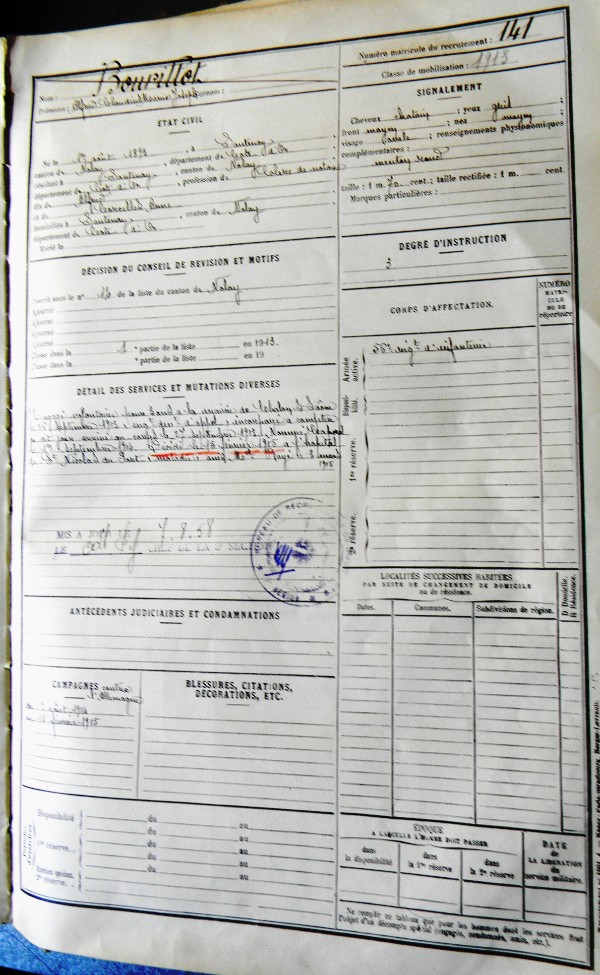 Numéro matricule du recrutement : 141
Classe de mobilisation : 1913
Nom : Bouvillot
Prénoms : surnom :
ÉTAT CIVIL
Né le août 189 , à Santenay
canton de Nolay , département de Côte d'Or
résidant à Santenay , canton de Nolay
département de Côte d'Or , profession de
fils de Alfred
et de Anne
domiciliés à Santenay , canton de Nolay
département de Côte d'Or
Marié le
SIGNALEMENT
Cheveux chatain ; yeux ;
front moyen ; nez moyen ;
visage ; renseignements physionomiques
complémentaires :
menton rond
taille : 1 m. 70 cent.; taille rectifiée : 1 m. cent.
Marques particulières :
DEGRÉ D'INSTRUCTION
3
DÉCISION DU CONSEIL DE REVISION ET MOTIFS
Inscrit sous le n° de la liste du canton de Nolay
Ajourné
Ajourné
Ajourné
Classé dans la 1 e partie de la liste en 1913.
Classé dans la e partie de la liste en 19
CORPS D'AFFECTATION.
NUMÉRO
MATRI-
CULE
ou au
répertoire
Armée
active.
56e régt d'infanterie
Disponi-
bilité.
1re réserve.
2e réserve.
DÉTAIL DES SERVICES ET MUTATIONS DIVERSES
Engagé volontaire pour 3 ans à la mairie de Chalon s Saône
le septembre 1913
au corps le septembre 1913. Nommé Caporal
le septembre 1914. Décédé le 18 février 1915 à l'hôpital
de St Nicolas du Port (maladie) avis Mel du 3 mars
1915
MIS A JOUR 7.8.58
LE CHEF DE LA 2e SECTION
BUREAU DE RECR
ANTÉCÉDENTS JUDICIAIRES ET CONDAMNATIONS
LOCALITÉS SUCCESSIVES HABITÉES
PAR SUITE DE CHANGEMENT DE DOMICILE
ou de résidence.
D. Domicile.
R. Résidence.
Dates. Communes. Subdivisions de région.
CAMPAGNES contre
l'Allemagne
du 2 août 1914
au 18 février 1915
BLESSURES, CITATIONS,
DÉCORATIONS, ETC.
Périodes
d'exercices
Disponibilité du au
du au
1re réserve du au
du au
du au
2e réserve. du au
ÉPOQUE
A LAQUELLE L'HOMME DOIT PASSER
dans
la disponibilité
dans
la 1re réserve
dans
la 2e réserve
DATE
de
LA LIBÉRATION
du
service militaire.
Ne remplir ce tableau que pour les hommes dont les services font
l'objet d'un décompte spécial (engagés, condamnés, omis, etc.).